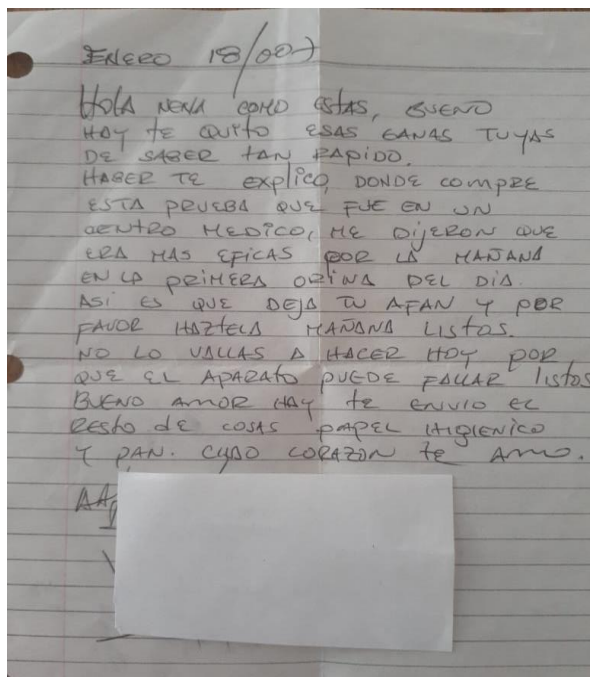 ENERO 18/007
HOLA NENA COMO ESTAS, BUENO
HAY TE QUITO ESAS GANAS TUYAS
DE SABER TAN RAPIDO.
HABER TE EXPLICO, DONDE COMPRE
ESTA PRUEBA QUE FUE EN UN
CENTRO MEDICO, ME DIJERON QUE
ERA MAS EFICAS POR LA MAÑANA
EN LA PRIMERA ORINA DEL DIA.
ASI ES QUE DEJA TU AFAN Y POR
FAVOR HAZTELA MAÑANA LISTOS.
NO LO VALLAS A HACER HOY POR
QUE EL APARATO PUEDE FALLAR LISTOS
BUENO AMOR HAY TE ENVIO EL
RESTO DE COSAS PAPEL HIGIENICO
Y PAN. CUIDO CORAZON TE AMO.